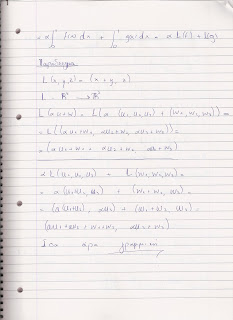 = α∫₀¹ f(x)dx + ∫₀¹ g(x)dx = α L(f) + L(g)
Παράδειγμα
L(x, y, z) = (x+y, z)
L : ℝ³ → ℝ²
L(αu+w) = L(α(u₁,u₂,u₃) + (w₁,w₂,w₃)) =
= L((αu₁+w₁, αu₂+w₂, αu₃+w₃)) =
= (αu₁+w₁+αu₂+w₂, αu₃+w₃)
αL(u₁,u₂,u₃) + L(w₁,w₂,w₃) =
= α(u₁+u₂, u₃) + (w₁+w₂, w₃) =
= (α(u₁+u₂), αu₃) + (w₁+w₂, w₃) =
(αu₁+αu₂+w₁+w₂, αu₃+w₃)
άρα γραμμική